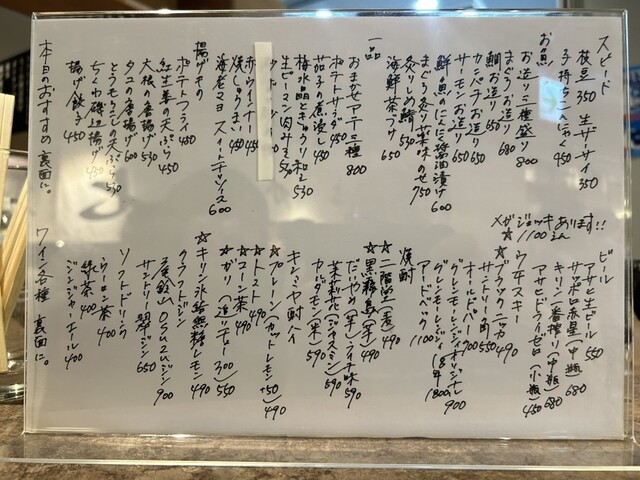 スピード
枝豆 350 生ザーサイ 350
子持ちこんにゃく 450
お魚
お造り三種盛り 800
まぐろお造り 680
鯛お造り 650
カンパチお造り 650
サーモンお造り 650
鮮魚のにんにく醤油漬け 600
まぐろ炙り薬味のせ 750
炙りしめ鯖 530
海鮮茶づけ 650
一品
おまかせアテ三種 800
ポテトサラダ 450
茄子の煮浸し 450
梅水晶ときゅうり和え 530
生ピーマン肉みそ 530
赤ウインナー 450
焼しゅうまい 450
海老マヨ スイートチリソース 600
揚げもの
ポテトフライ 450
紅生姜の天ぷら 450
大根の唐揚げ 530
タコの唐揚げ 600
とうもろこしの天ぷら 530
ちくわ磯辺揚げ 450
揚げ餃子 450
本日のおすすめ 裏面に。
メガジョッキあります!!
☆ 1100えん
ビール
アサヒ生ビール 550
サッポロ赤星(中瓶) 680
キリン一番搾り(中瓶) 680
アサヒドライゼロ(小瓶) 450
ウヰスキー
☆ブラックニッカ 490
サントリー角 550
オールドパー 700
グレンモーレンジィオリジナル 900
グレンモーレンジィ(18年) 1800
アードベック 1100
焼酎
☆二階堂(麦) 490
☆黒霧島(芋) 490
だいやめ(芋)ライチ味 590
茉莉花(ジャスミン) 590
カルダモン(芋) 590
キンミヤ酎ハイ
☆プレーン(カットレモン+50) 490
☆トマト 490
☆コーン茶 490
☆ガリ(追いガリー300) 550
☆キリン氷結無糖レモン 490
クラフトジン
尾鈴山OSUZUジン 900
サントリー翠ジン 650
ソフトドリンク
ウーロン茶 400
緑茶 400
ジンジャエール 400
ワイン各種 裏面に。